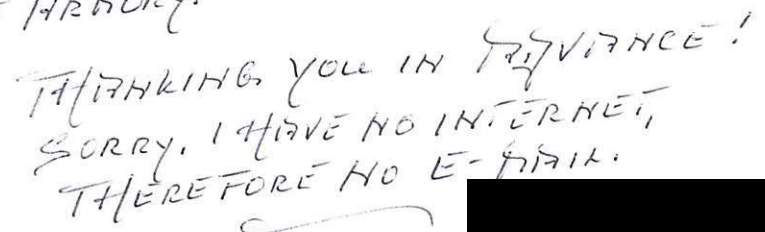 ARMORY.
THANKING YOU IN ADVANCE!
SORRY. I HAVE NO INTERNET,
THEREFORE NO E-MAIL.